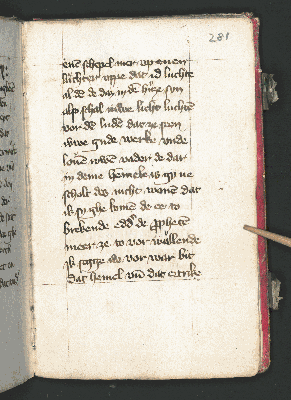 281
enē schepel mer up enen
luchter uppe dat id luchte
al dē de dar in dē huze syn
alsо schal iuwe licht luchten
vor dē ludē dat ze seen
iuwe gude werke unde
louen iuwen vader de dar
in deme hemele is gy ne
scholt des nicht wenen dat
ik sy ghe komē de ee to
brekende edd' de ꝓphetē
meer ze to vor vullende
ik segge iw vor war bit
dat hemel vn̄ dat ertrike